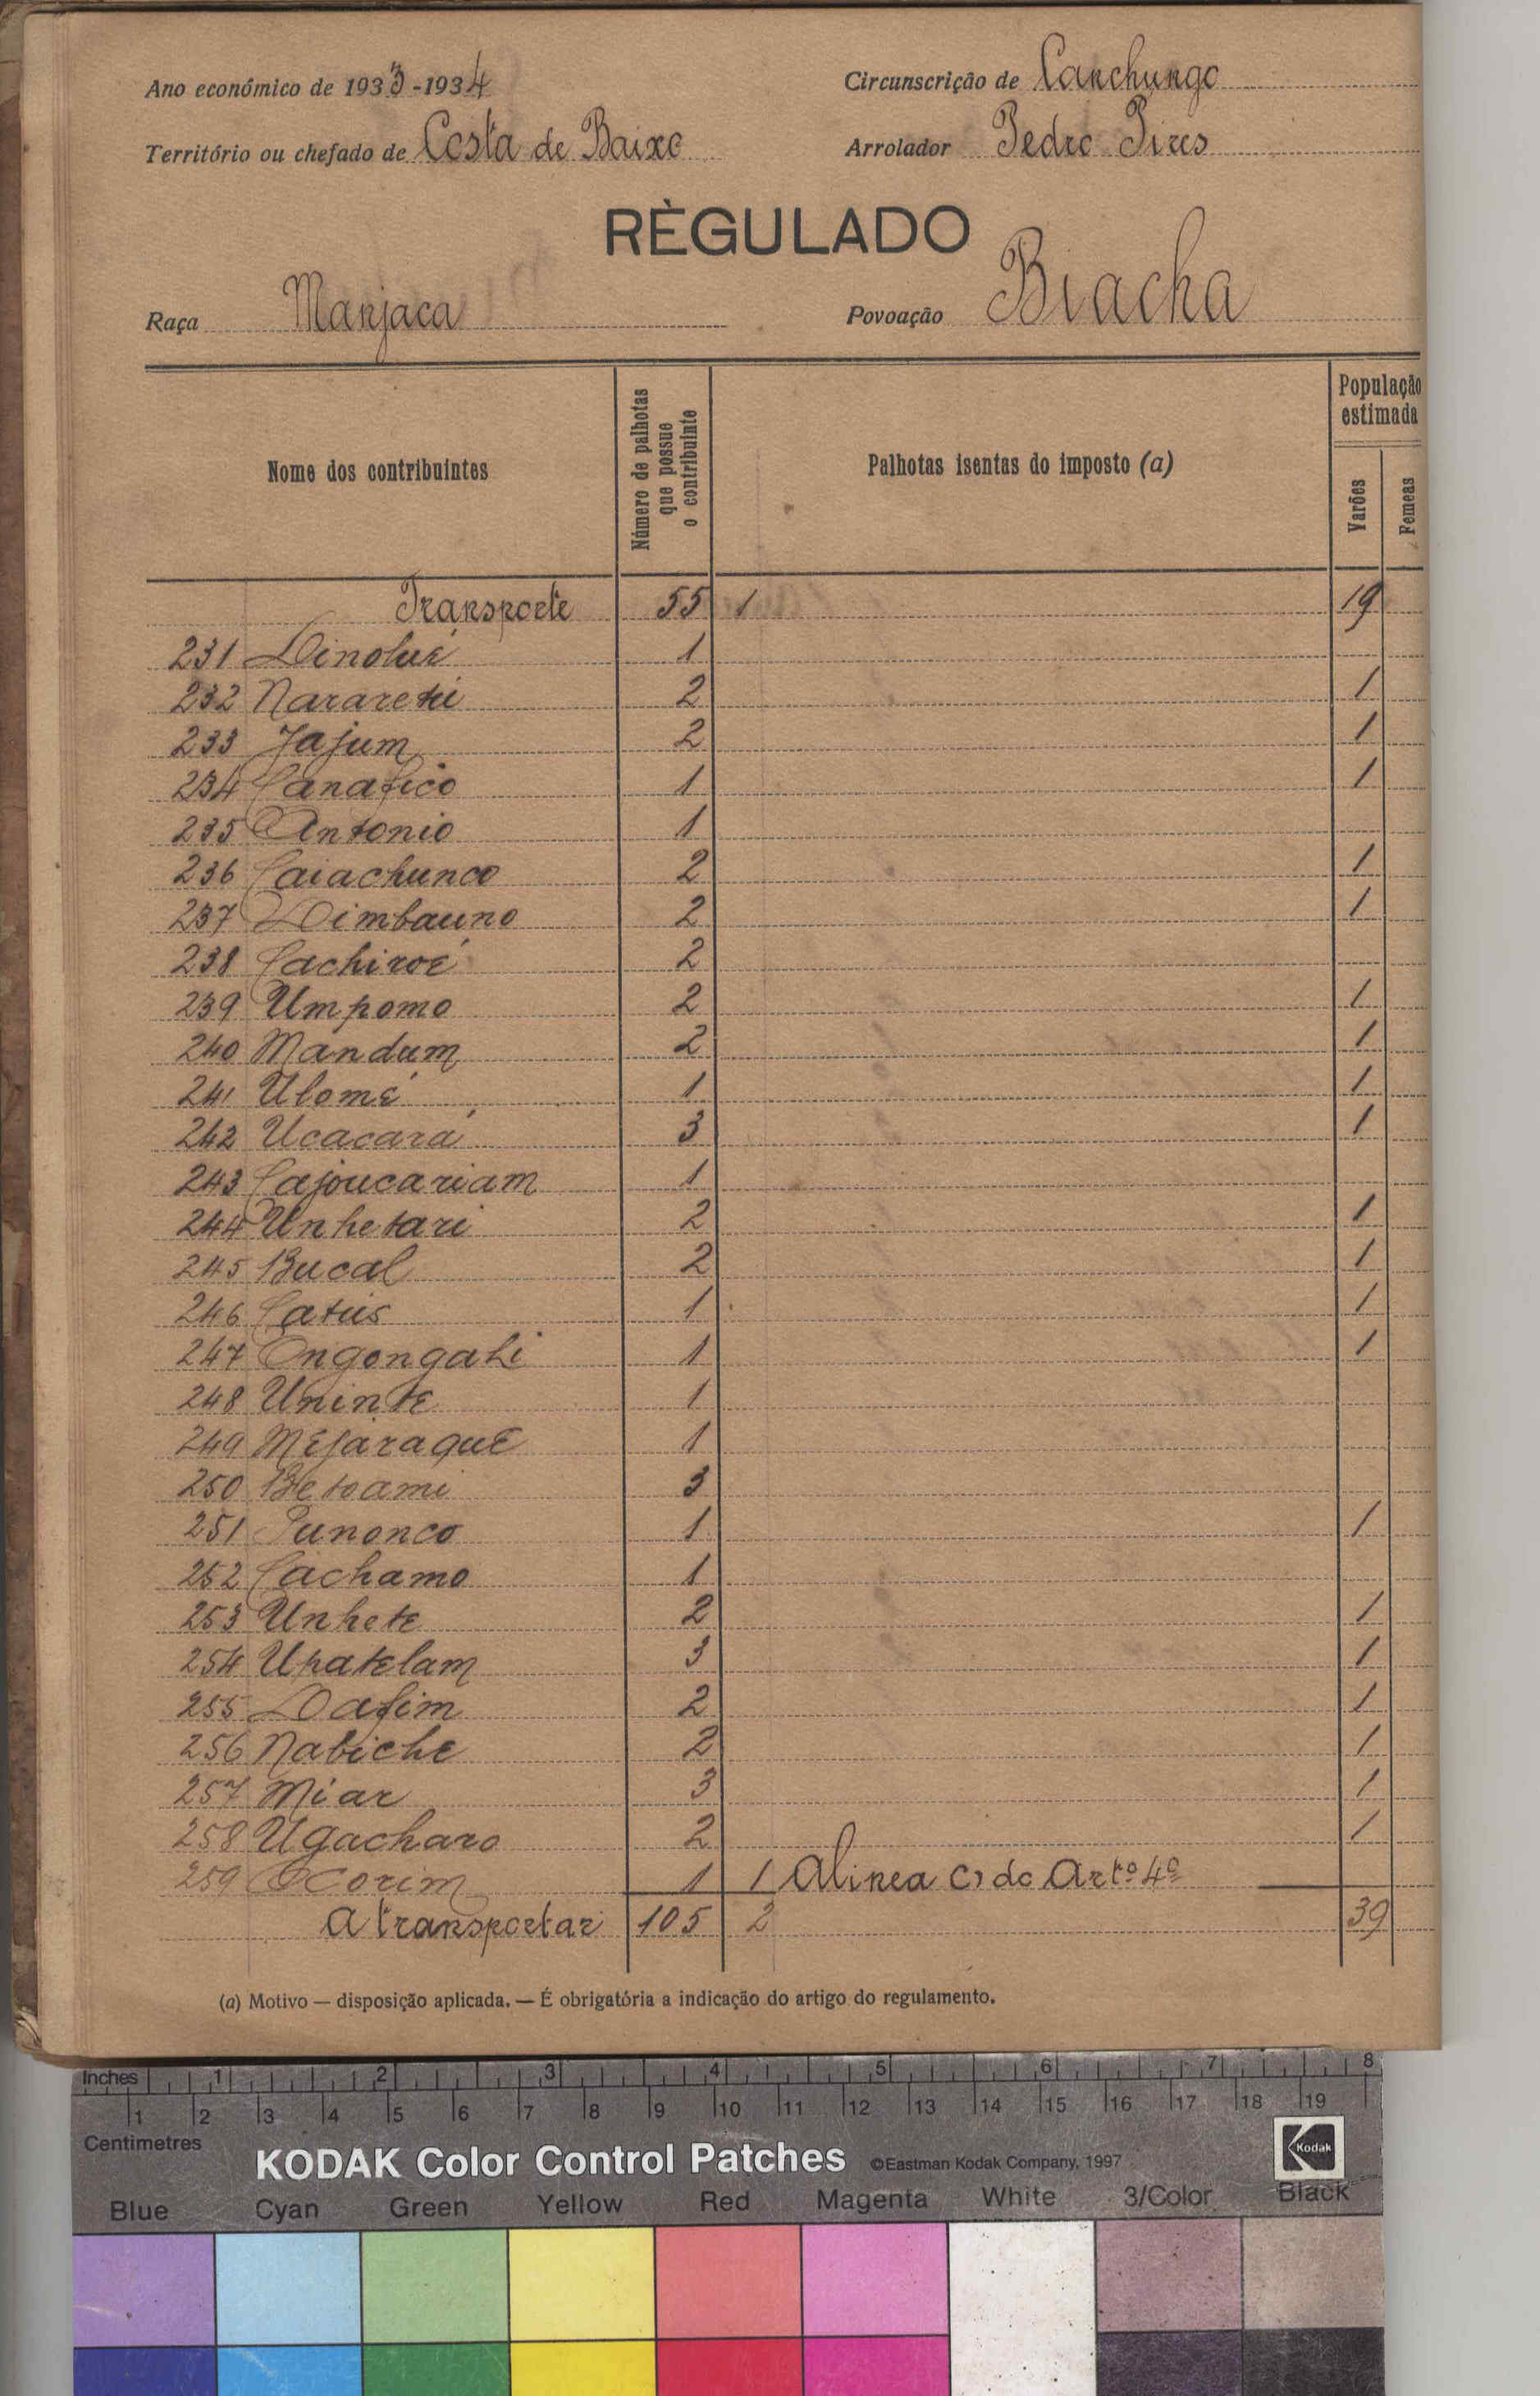 Ano económico de 1933-1934
Circunscrição de Canchungo
Território ou chefado de Costa de Baixo
Arrolador Pedro Pires
RÈGULADO
Raça Manjaca
Povoação Biacha
Nome dos contribuintes
Número de palhotas que possue o contribuinte
Palhotas isentas do imposto (a)
População estimada
Varões
Femeas
Transporte 55 1 19
231 Dinolué 1
232 Nararetú 2 1
233 Jajum 2 1
234 Canafico 1 1
235 Antonio 1
236 Caiachunco 2 1
237 Dimbauno 2 1
238 Cachiroé 2
239 Umpomo 2 1
240 Mandum 2 1
241 Ulomé 1 1
242 Ucacará 3 1
243 Cajoucariam 1
244 Unhetari 2 1
245 Bucal 2 1
246 Catús 1 1
247 Ongongahi 1 1
248 Uninte 1
249 Mejáraque 1
250 Betoami 3
251 Punonco 1 1
252 Cachamo 1
253 Unhete 2 1
254 Upatelam 3 1
255 Dafim 2 1
256 Nabiche 2 1
257 Miar 3 1
258 Ugacharo 2 1
259 Ocorim 1 1 Alinea c) do Artº 4º
A transportar 105 2 39
(a) Motivo — disposição aplicada. — É obrigatória a indicação do artigo do regulamento.
Inches 1 2 3 4 5 6 7 8
1 2 3 4 5 6 7 8 9 10 11 12 13 14 15 16 17 18 19
Centimetres
KODAK Color Control Patches ©Eastman Kodak Company, 1997 Kodak
Blue Cyan Green Yellow Red Magenta White 3/Color Black